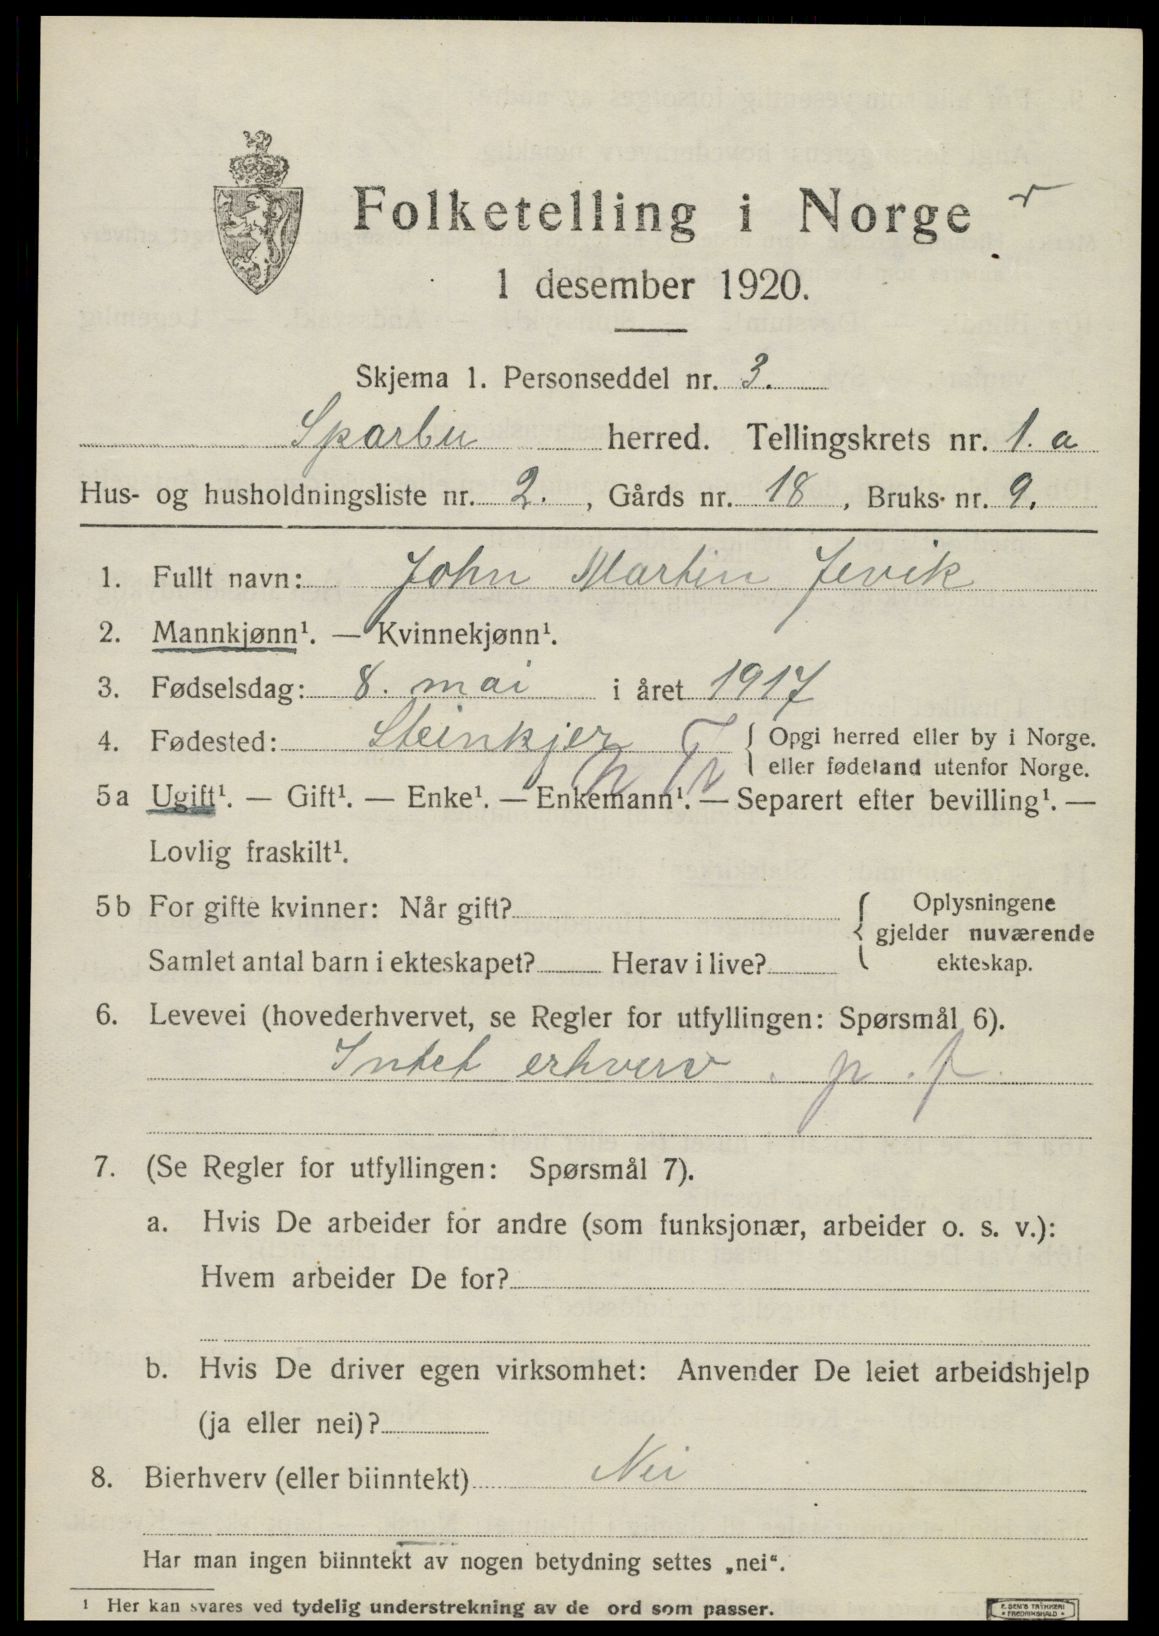 Folketelling i Norge
1 desember 1920.
Skjema 1. Personseddel nr. 3.
Sparbu herred. Tellingskrets nr. 1. a
Hus- og husholdningsliste nr. 2., Gårds nr. 18, Bruks- nr. 9.
1. Fullt navn: John Martin Jevik
2. Mannkjønn¹. — Kvinnekjønn¹.
3. Fødselsdag: 8. mai i året 1917
4. Fødested: Steinkjer { Opgi herred eller by i Norge.
N Tr eller fødeland utenfor Norge.
5 a Ugift¹. — Gift¹. — Enke¹. — Enkemann¹. — Separert efter bevilling¹. —
Lovlig fraskilt¹.
5 b For gifte kvinner: Når gift? { Oplysningene
gjelder nuværende
Samlet antal barn i ekteskapet? Herav i live? ekteskap.
6. Levevei (hovederhvervet, se Regler for utfyllingen: Spørsmål 6).
Intet erhverv. p. f.
7. (Se Regler for utfyllingen: Spørsmål 7).
a. Hvis De arbeider for andre (som funksjonær, arbeider o. s. v.):
Hvem arbeider De for?
b. Hvis De driver egen virksomhet: Anvender De leiet arbeidshjelp
(ja eller nei)?
8. Bierhverv (eller biinntekt) Nei
Har man ingen biinntekt av nogen betydning settes „nei“.
¹ Her kan svares ved tydelig understrekning av de ord som passer.
E. SEM'S TRYKKERI
FREDRIKSHALD